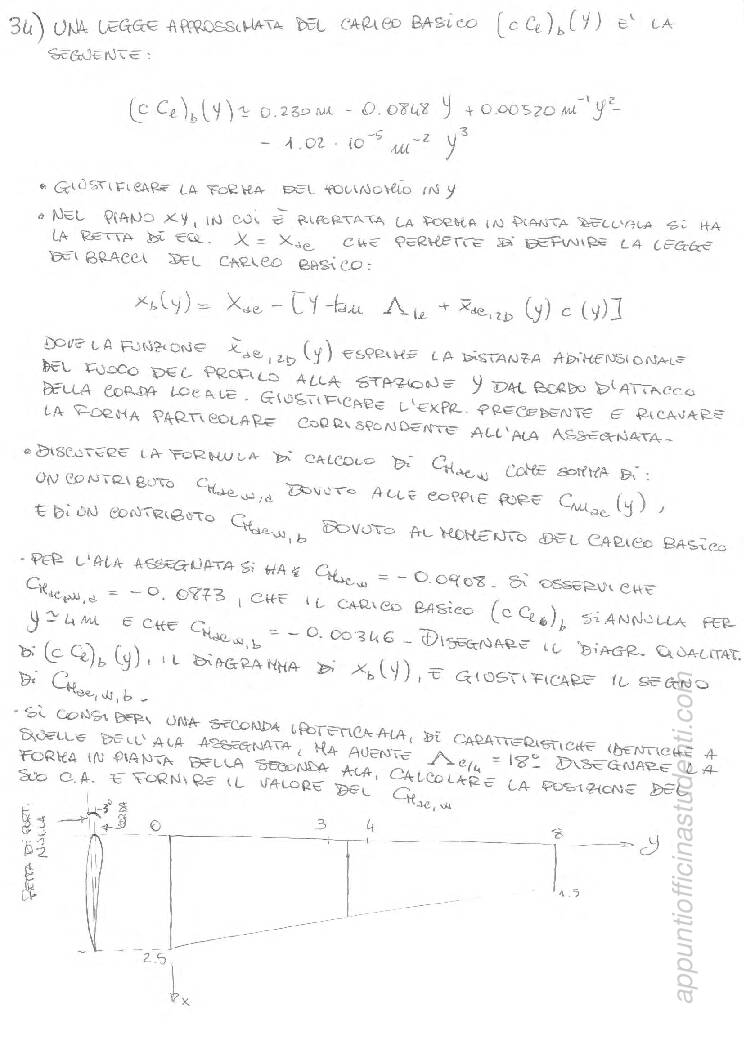 34) UNA LEGGE APPROSSIMATA DEL CARICO BASICO (c Cℓ)b(y) E' LA
SEGUENTE:
(c Cℓ)b(y) ≃ 0.230 m - 0.0848 y + 0.00520 m⁻¹ y² -
- 1.02 · 10⁻⁵ m⁻² y³
• GIUSTIFICARE LA FORMA DEL POLINOMIO IN y
• NEL PIANO XY, IN CUI È RIPORTATA LA FORMA IN PIANTA DELL'ALA SI HA
LA RETTA DI EQ. X = Xac CHE PERMETTE DI DEFINIRE LA LEGGE
DEI BRACCI DEL CARICO BASICO:
xb(y) = Xac - [y tan Λle + x̄ac,2D (y) c(y)]
DOVE LA FUNZIONE x̄ac,2D (y) ESPRIME LA DISTANZA ADIMENSIONALE
DEL FUOCO DEL PROFILO ALLA STAZIONE y DAL BORDO D'ATTACCO
DELLA CORDA LOCALE. GIUSTIFICARE L'EXPR. PRECEDENTE E RICAVARE
LA FORMA PARTICOLARE CORRISPONDENTE ALL'ALA ASSEGNATA.
• DISCUTERE LA FORMULA DI CALCOLO DI CMac,w COME SOMMA DI:
UN CONTRIBUTO CMac,w,a DOVUTO ALLE COPPIE PURE Cmac(y),
E DI UN CONTRIBUTO CMac,w,b DOVUTO AL MOMENTO DEL CARICO BASICO
- PER L'ALA ASSEGNATA SI HA CMac,w = -0.0908. SI OSSERVI CHE
CMac,w,a = -0.0873, CHE IL CARICO BASICO (c Cℓb)b SI ANNULLA PER
y ≃ 4m E CHE CMac,w,b = -0.00346. DISEGNARE IL DIAGR. QUALITAT.
DI (c Cℓ)b(y), IL DIAGRAMMA DI xb(y), E GIUSTIFICARE IL SEGNO
DI CMac,w,b.
- SI CONSIDERI UNA SECONDA IPOTETICA ALA, DI CARATTERISTICHE IDENTICHE A
QUELLE DELL'ALA ASSEGNATA, MA AVENTE Λc/4 = 18° DISEGNARE LA
FORMA IN PIANTA DELLA SECONDA ALA, CALCOLARE LA POSIZIONE DEL
SUO C.A. E FORNIRE IL VALORE DEL CMac,w
RETTA DI PORT.
NULLA
-3°
CORDA
0
3
4
8
y
1.5
2.5
x
appuntiofficinastudenti.com